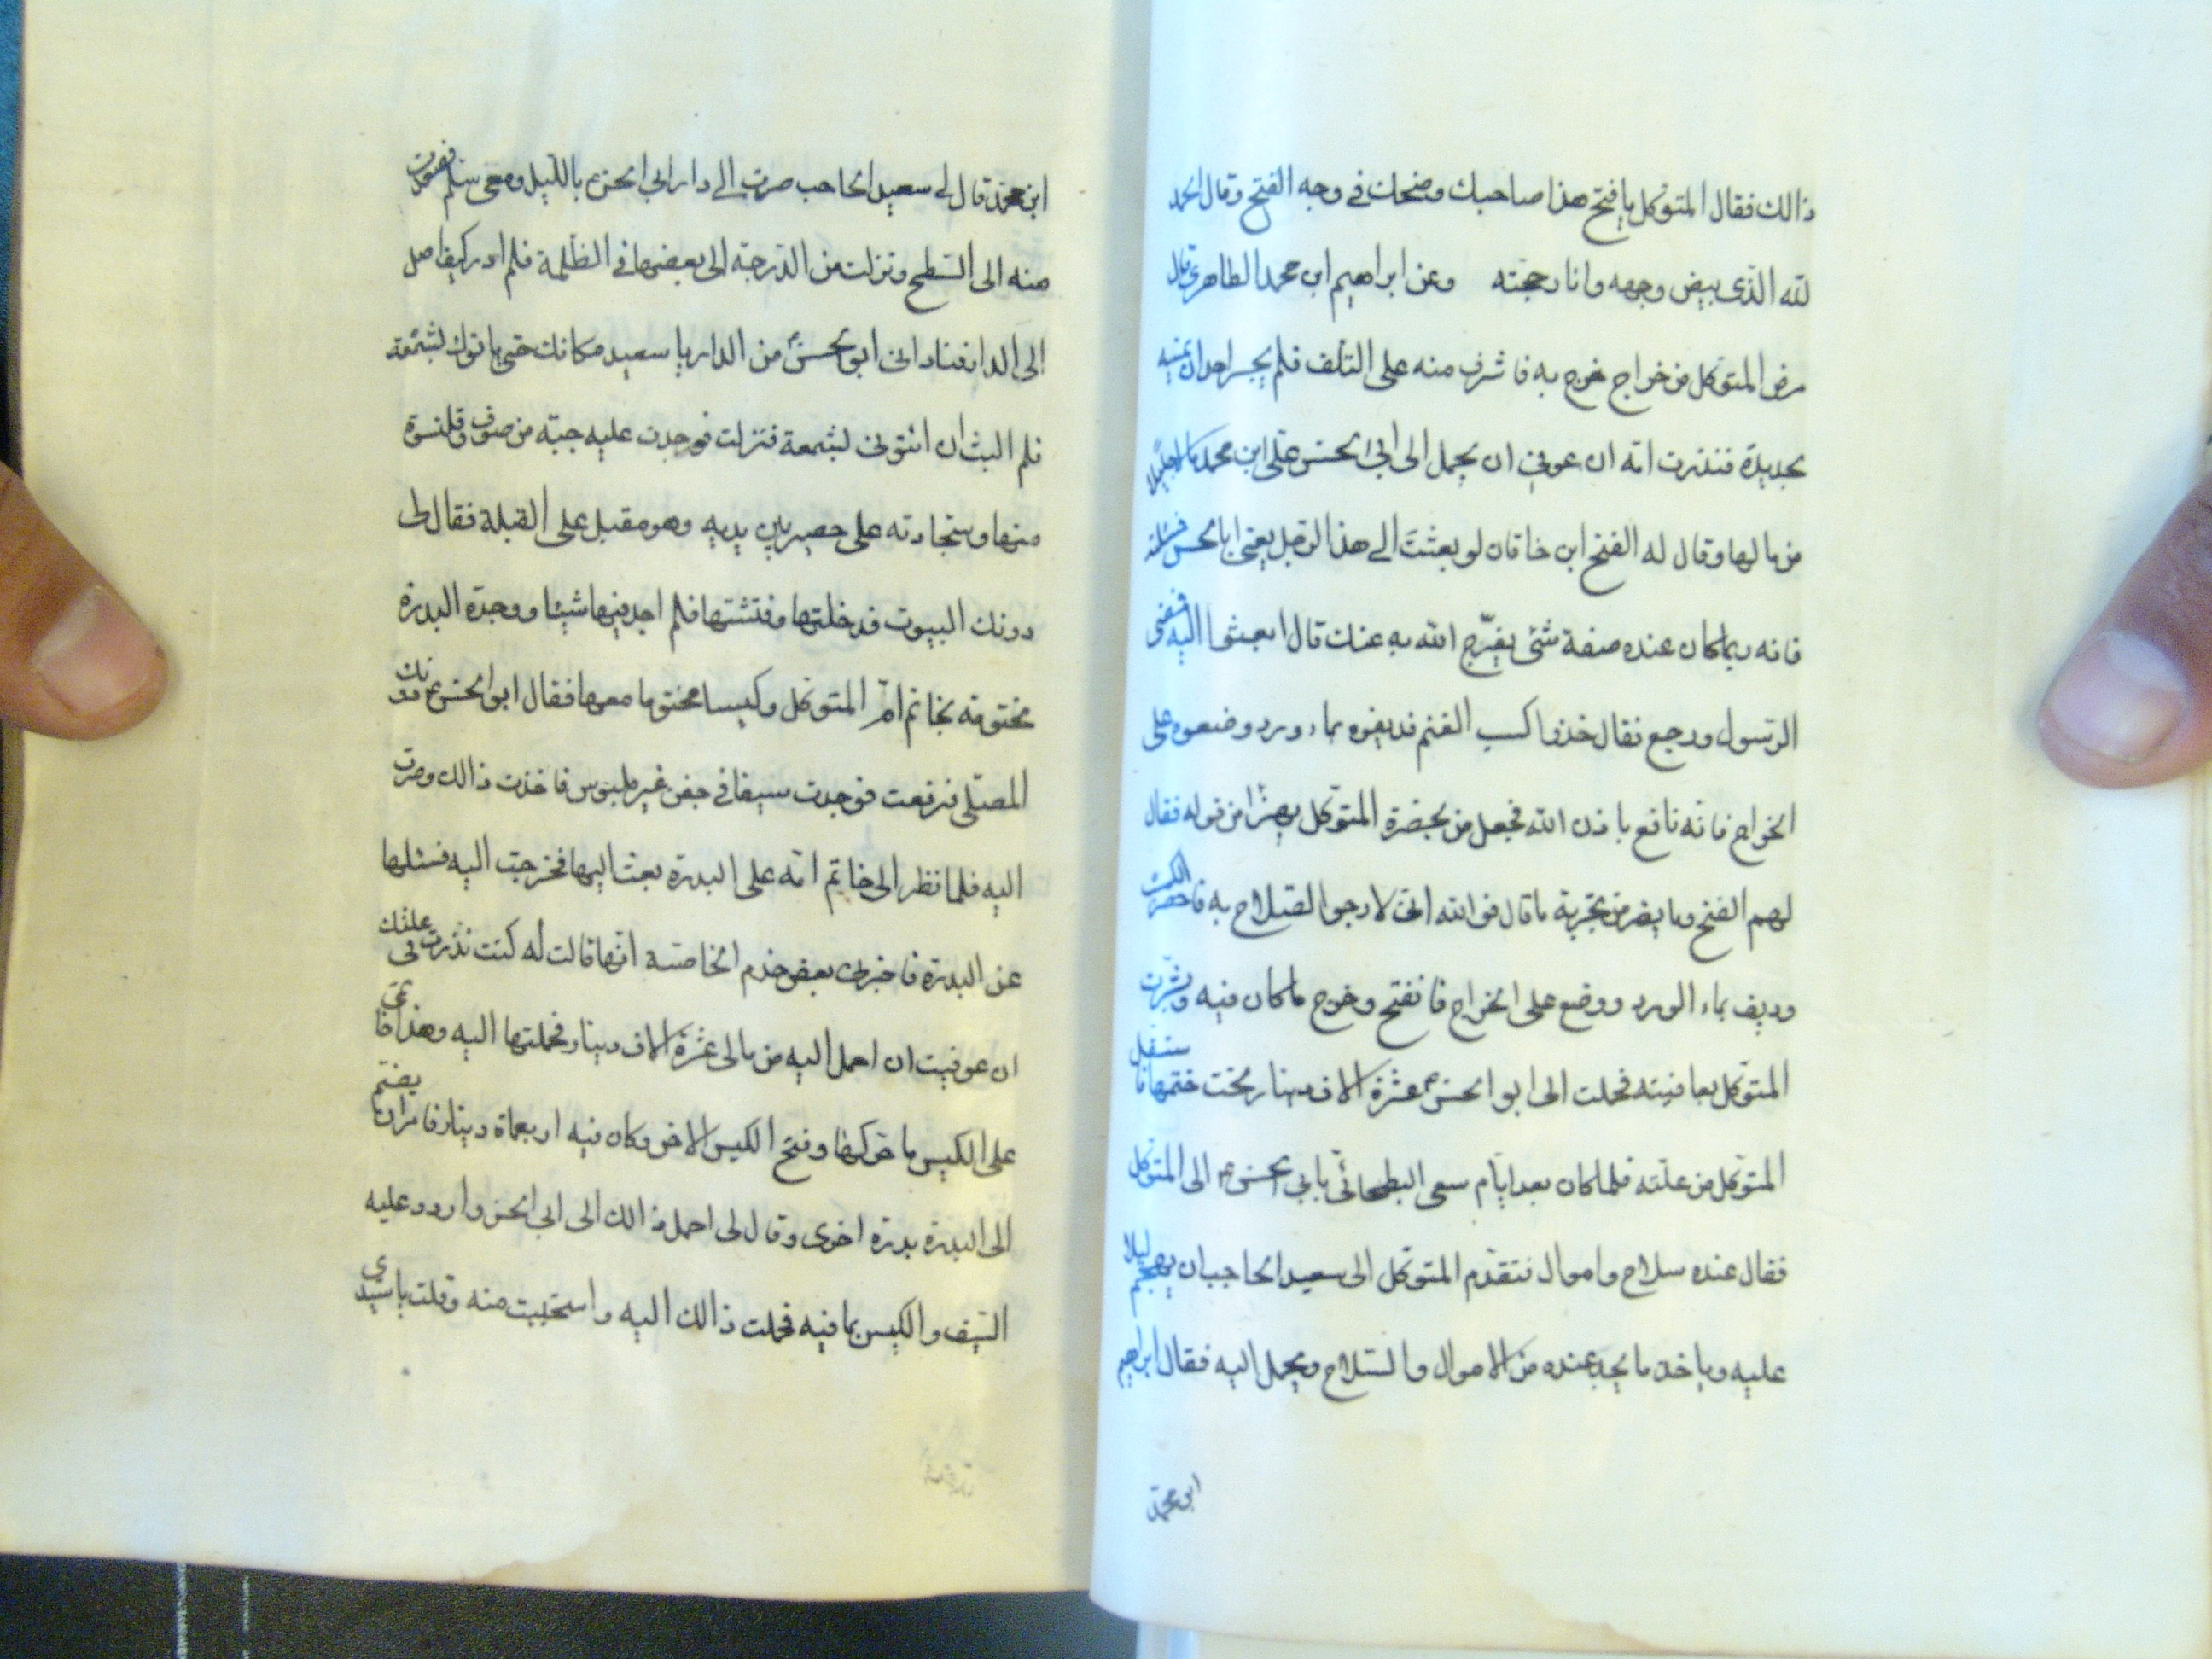 ذالك فقال المتوكل يا فتح هذا صاحبك وضحك في وجه الفتح وقال الحمد
لله الذي بيض وجهه وانا رحجته وعن ابراهيم ابن محمد الطاهري قال
مرض المتوكل من خراج خرج به فاشرف منه على التلف فلم يجسر احد ان يمسه
بحديدة فنذرت امه ان عوفي ان يحمل الى ابي الحسن علي ابن محمد مالا جليلا
من مالها وقال له الفتح ابن خاقان لو بعثت الى هذا الرجل يعني ابا الحسن فسئلته
فانه ربما كان عنده صفة شئ يفرج الله به عنك قال ابعثوا اليه فمضى
الرسول ورجع فقال خذوا كسب الغنم فديفوه بماء ورد وضعوه على
الخراج فانه نافع باذن الله فجعل من بحضرة المتوكل يهزأ من قوله فقال
لهم الفتح وما يضر من تجربة ما قال فوالله اني لارجوا الصلاح به فاحضرت الكسب
وديف بماء الورد ووضع على الخراج فانفتح وخرج ما كان فيه وبشرت
المتوكل بعافيته فحملت الى ابو الحسن ع عشرة الاف دينار تحت ختمها فاستقل
المتوكل من علته فلما كان بعد ايام سعى البطحائي بابي الحسن ع الى المتوكل
فقال عنده سلاح واموال فتقدم المتوكل الى سعيد الحاجب ان يهجم ليلا
عليه وياخذ ما يجد عنده من الاموال والسلاح ويحمل اليه فقال ابراهيم
ابن محمد
ابن محمد قال لي سعيد الحاجب صرت الى دار ابي الحسن ع بالليل ومعي سلم فصعدت
منه الى السطح ونزلت من الدرجة الى بعضها في الظلمة فلم ادر كيف اصل
الى الدار فناداني ابو الحسن ع من الدار يا سعيد مكانك حتى ياتوك بشمعة
فلم البث ان ائتوني بشمعة فنزلت فوجدت عليه جبة من صوف وقلنسوة
منها وسجادته على حصير بين يديه وهو مقبل على القبلة فقال لي
دونك البيوت فدخلتها وفتشتها فلم اجد فيها شيئا ووجدة البدرة
مختومة بخاتم ام المتوكل وكيسا مختوما معها فقال ابو الحسن ع دونك
المصلى فرفعت فوجدت سيفا في جفن غير ملبوس فاخذت ذالك وصرت
اليه فلما نظر الى خاتم امه على البدرة بعث اليها فخرجت اليه فسئلها
عن البدرة فاخبرني بعض خدم الخاصة انها قالت له كنت نذرت في علتك
ان عوفيت ان احمل اليه من مالى عشرة الاف دينار فحملتها اليه وهذا خاتمي
على الكيس ما حركها وفتح الكيس الاخر وكان فيه اربعماة دينار فامر ان يضم
الى البدرة بدرة اخرى وقال لى احمل ذالك الى ابي الحسن واردد عليه
السيف والكيس بما فيه فحملت ذالك اليه واستحييت منه وقلت يا سيدي